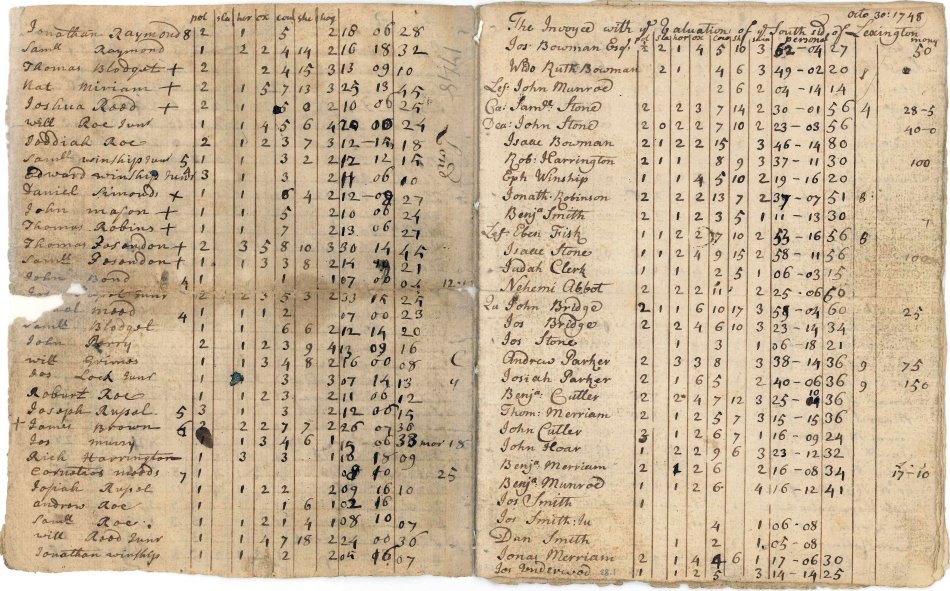 pol sla hor ox cow she hog
Jonathan Raymond 8 2 1 5 2 18 06 28
Samll Raymond 1 2 2 4 14 2 16 18 32
Thomas Blodget + 2 2 4 15 3 13 09 10
Nat Miriam + 2 1 5 7 13 3 25 13 45
Joshua Reed + 2 1 5 0 2 10 06 25
will Roe Junr 1 1 4 5 6 4 20 00 24
Jeddiah Roe 2 1 2 3 7 3 12 - 15 18
Samll winship Junr 5 1 1 3 2 2 12 12 15
Edward winship Junr 3 1 3 2 11 06 10
Daniel Simonds + 1 1 6 4 2 12 - 08 27
John mason + 1 1 5 2 10 06 24
Thomas Robins + 1 1 7 2 13 06 27
Thomas + 2 3 5 8 10 3 30 14 45
Samll + 1 1 3 3 8 2 14 21
John Bond 4 1 1 1 07 00 04 12-
Junr 2 2 3 5 3 2 33 15 25
mood 4 1 1 2 07 00 23
Samll Blodget 1 6 6 2 12 14 20
John Perry 2 1 2 3 9 4 13 09 16
will Grimes 1 3 4 8 2 16 00 08
Jos Lock Junr 1 3 3 07 14 13
Robart Roe 1 1 2 3 2 11 00 12
Joseph Rusol 5 3 1 3 2 12 06 15
+ James Brown 6 2 2 2 7 7 2 26 07 36
Jos 1 3 4 6 1 15 06 33 mor 18
Rich Harrington 1 3 3 1 18 18 09
Cornelios moods 7 08 10 25
Josiah Rusol 1 1 2 2 2 09 16 10
andrew Roe 1 1 6 1 02 16
Samll Roe 1 1 2 4 1 08 10 07
will Reed Junr 1 1 4 7 18 2 24 00 36
Jonathan winship 1 1 2 2 05 06 07
Lexn 1748
Octo. 30: 1748
The Invoyce with ye Valuation of ye South side of Lexington
pol sla hor ox cow she swi personal mony
Jos Bowman Esqr 2 2 1 4 5 10 3 62 - 04 27 50
Wido Ruth Bowman 2 1 4 6 3 49 - 02 20 8
Lef John Munrod 2 6 2 04 - 14 14
Ca: Samll Stone 2 2 3 7 14 2 30 - 01 56 4 28-5
Dea: John Stone 2 0 2 2 7 10 2 23 - 03 56 40-0
Isaac Bowman 2 1 2 2 15 3 46 - 14 80
Rob: Harrington 2 1 1 8 9 3 37 - 11 30 100
Eph Winship 1 1 4 5 10 2 19 - 16 20
Jonath: Robinson 2 2 2 13 7 2 37 - 07 51 8
Benja Smith 2 1 2 3 5 1 11 - 13 30
Lef: Eben Fish 1 1 2 7 10 2 53 - 16 56 6
Isaac Stone 1 1 2 4 9 15 2 58 - 11 56 100
Judah Clerk 1 1 2 5 1 06 - 03 15
Nehemi Abbot 2 2 2 11 2 25 - 06 60
Qu John Bridge 2 1 1 6 10 17 3 58 - 04 60 25
Jos Bridge 2 2 4 6 10 3 23 - 14 34
Jos Stone 1 3 1 06 - 18 21
Andrew Parker 2 3 3 8 3 38 - 14 36 9 75
Josiah Parker 2 1 6 5 2 40 - 06 36 9 150
Benja: Cutler 2 2 4 7 12 3 25 - 36
Thom: Merriam 2 1 2 5 7 3 15 - 15 36
John Cutler 3 1 2 6 7 1 16 - 09 24
John Hoar 1 2 2 9 6 3 23 - 12 32
Benja Merriam 2 1 2 6 2 16 - 08 34 17-10
Benja Munrod 1 1 2 6 4 16 - 12 41
Jos Smith 1
Jos Smith: Ju 4 1 06 - 08
Dan Smith 1 2 1 05 - 08
Jonas Merriam 1 1 2 4 4 6 1 17 - 06 30
Jos Underwod 1 1 2 5 3 14 - 14 25